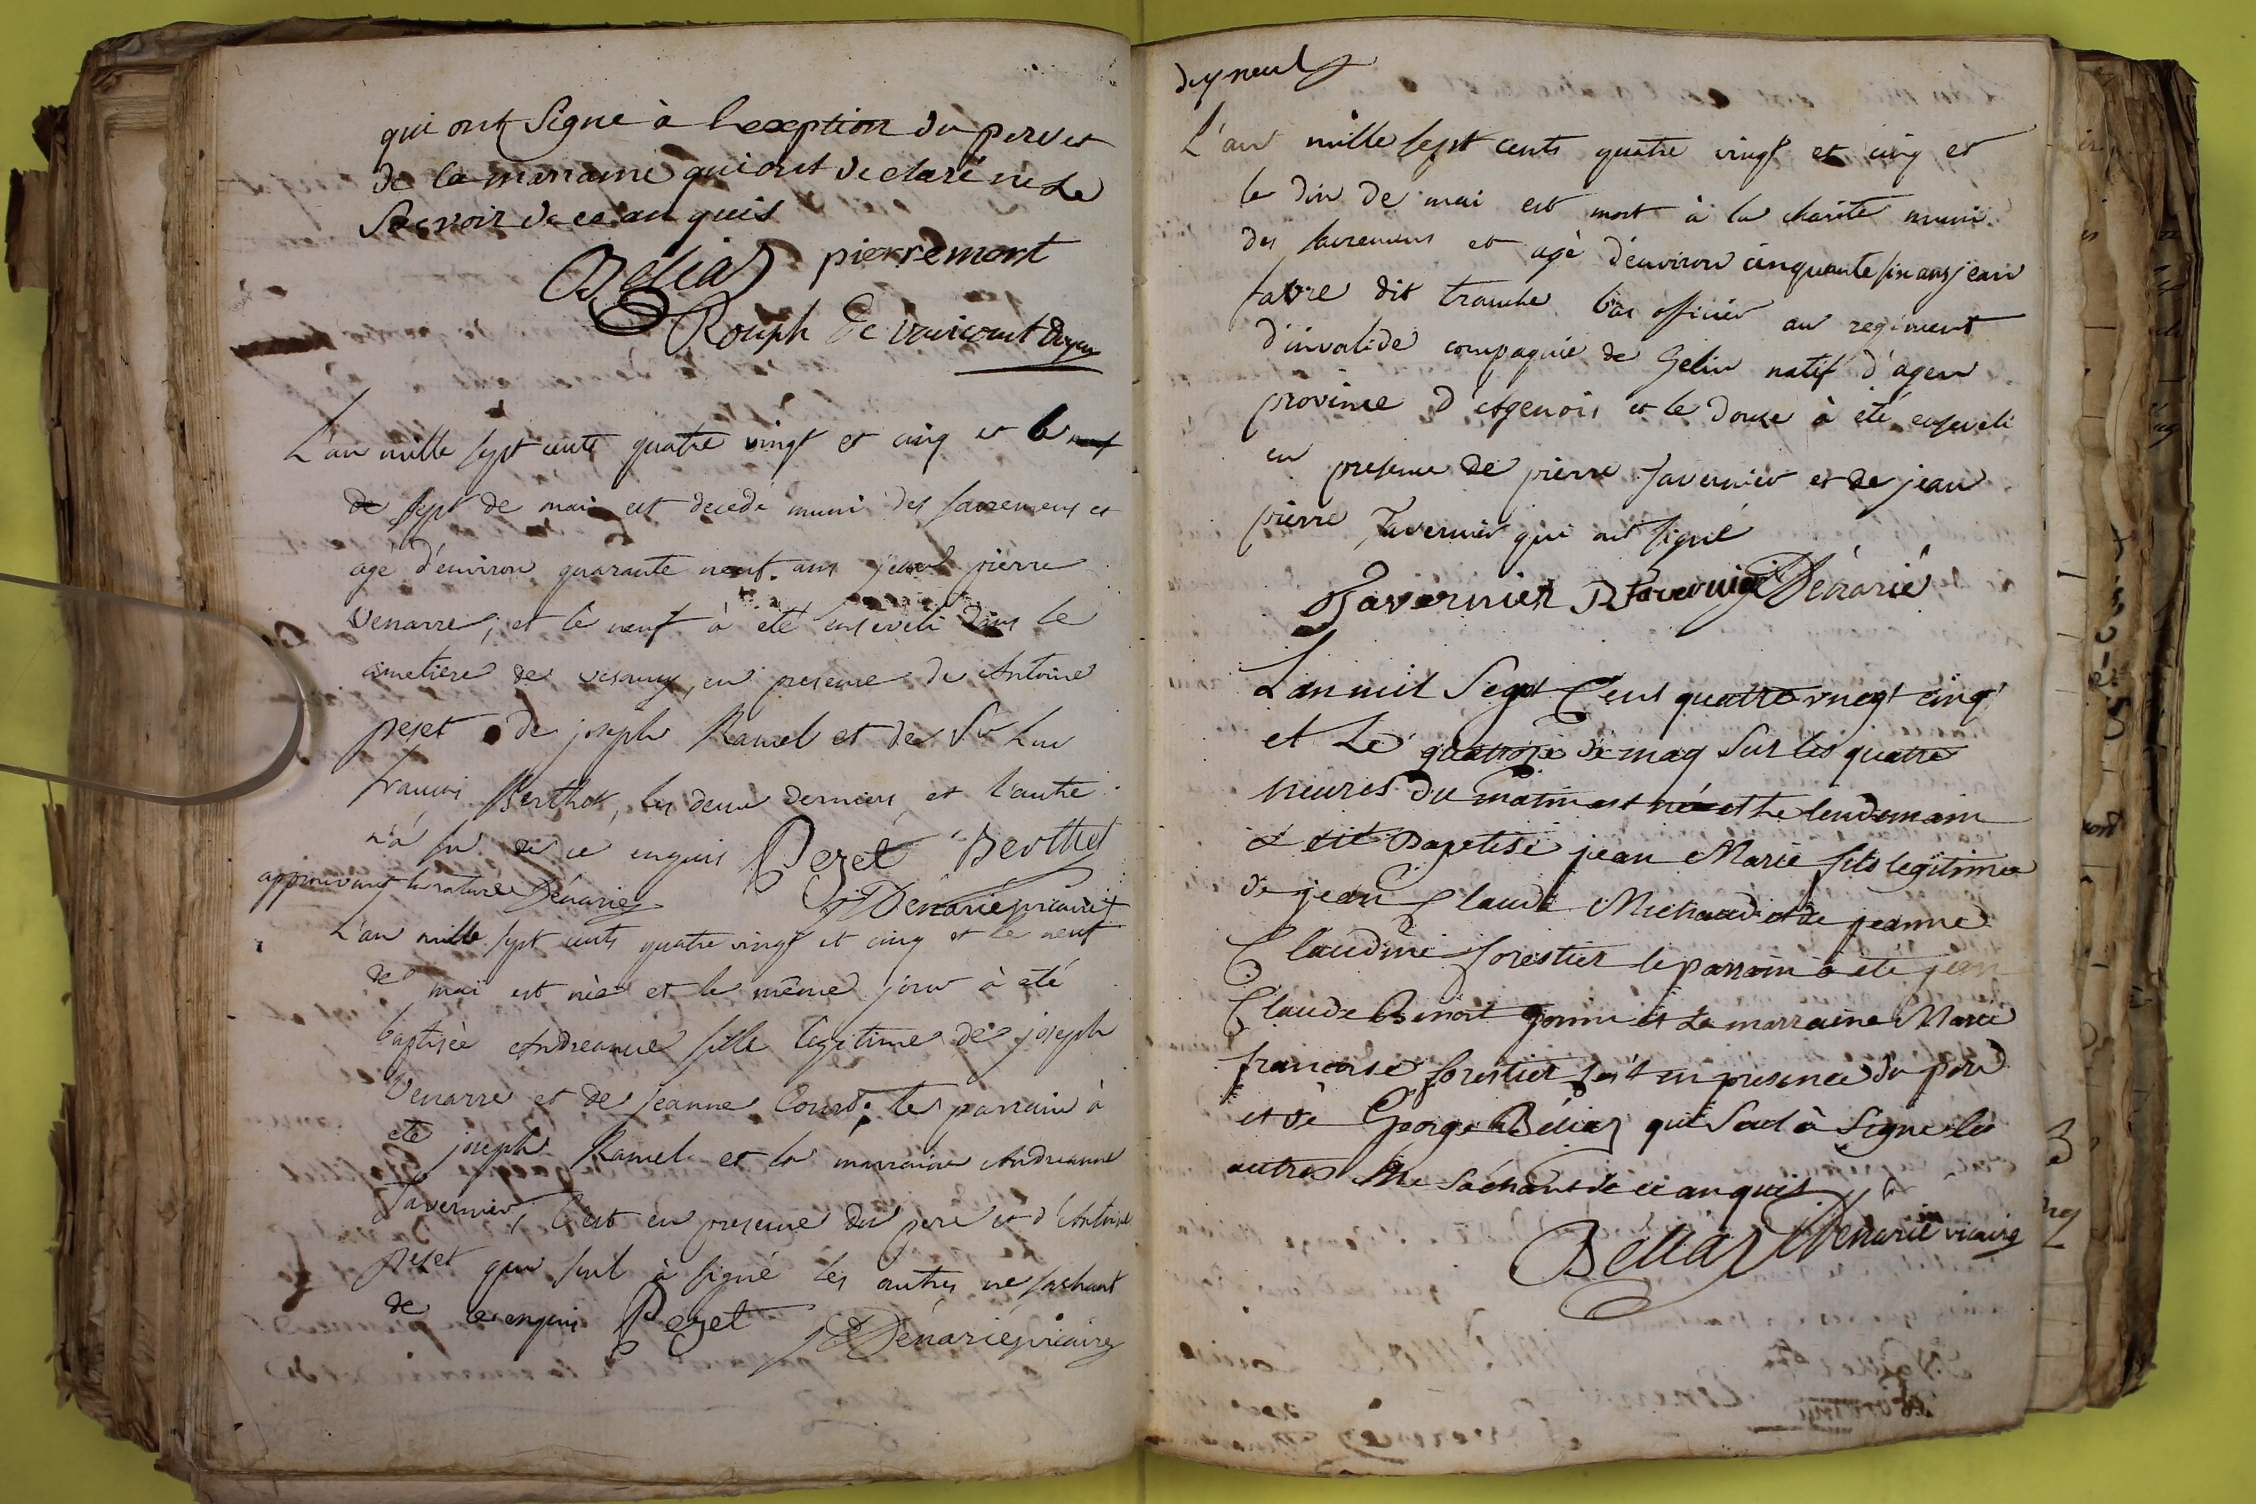 qui ont Signé à lexeption du pere et
de la marraine qui ont declaré ne le
Scavoir de ce an quis
Béliaz pierremont
Rouph De Varicourt Doyen
L'an mille sept cents quatre vingt et cinq et le neuf
de sept de mai est decedé muni des sacremens et
agé d'environ quarante neuf ans pierre
Venarre, et le neuf à eté enseveli dans le
cimetiere de vesancy, en presence de Antoine
pezet de joseph Ramel et de Sr Luc
françois Berthet, les deux derniers et l'autre
n'a su de ce enquis Pezet Berthet
approuvant la rature Dénarié J Dénarié vicaire
L'an mille sept cents quatre vingt et cinq et le neuf
de mai est née et le même jour à eté
baptisée Andreanne fille legitime de joseph
Venarre et de jeanne Court. le parrain à
eté joseph Ramel et la marraine Andreanne
Tavernier, C'est en presence du pere et d'Antoine
pezet qui seul à signé les autres ne sachant
de ce enquis Pezet J Dénarié vicaire
dixneuf
L'an mille sept cents quatre vingt et cinq et
le dix de mai est mort à la charité muni
des sacremens et agé d'environ cinquante six ans jean
favre dit tranche bas officier au regiment
d'invalide compagnie de Gelin natif d'agen
province d'Agenois et le douze à été enseveli
en presence de pierre Tavernier et de jean
pierre Tavernier qui ont signé
Tavernier P Tavernier J Dénarié
Lan mil Sept Cent quatre vingt cinq
et Le quatorze de may Sur les quatre
heures du matin est né et le lendemain
a eté Baptisé jean Marie fils legitime
de jean Claude Michaud et de jeanne
Claudine forestier le parrain à été jean
Claude Benoit et La marraine Marie
francoise forestier fait en presence du pere
et de George Béliaz qui Seul à Signé les
autres Ne Sachant de ce an quis
Béliaz J Dénarié vicaire